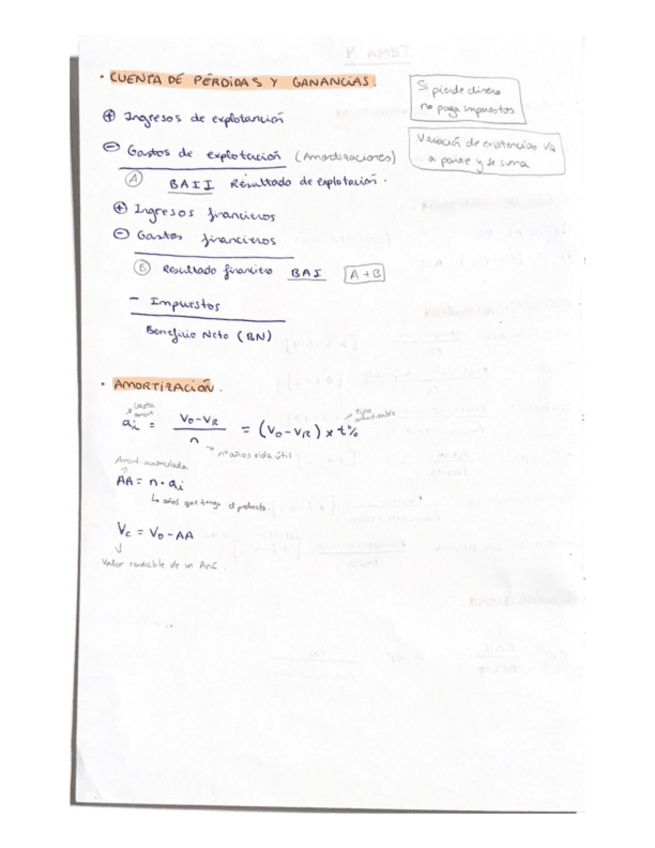 · CUENTA DE PÉRDIDAS Y GANANCIAS.
Si pierde dinero
no paga impuestos
⊕ Ingresos de explotanción
Variación de existencias va
a parte y se suma
⊖ Gastos de explotación (Amortizaciones)
Ⓐ BAII Resultado de explotación.
⊕ Ingresos financieros
⊖ Gastos financieros
Ⓑ Resultado financiero BAI A+B
- Impuestos
Beneficio Neto (BN)
· AMORTIZACIÓN.
cuota
amort.
tipo
amortizable
ai = V0-VR / n = (V0-VR) x t%
nº años vida útil
Amort. acumulada
AA = n · ai
↳ años que tengo el producto.
Vc = V0 - AA
↓
Valor contable de un AnC.